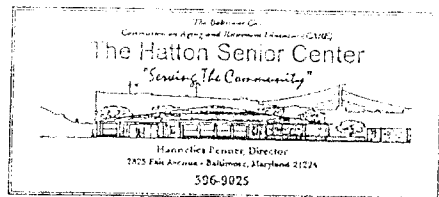 The Baltimore City
Commission on Aging and Retirement Education (CARE)
The Hatton Senior Center
"Serving The Community"
Hannelies Penner, Director
2825 Fait Avenue - Baltimore, Maryland 21224
396-9025